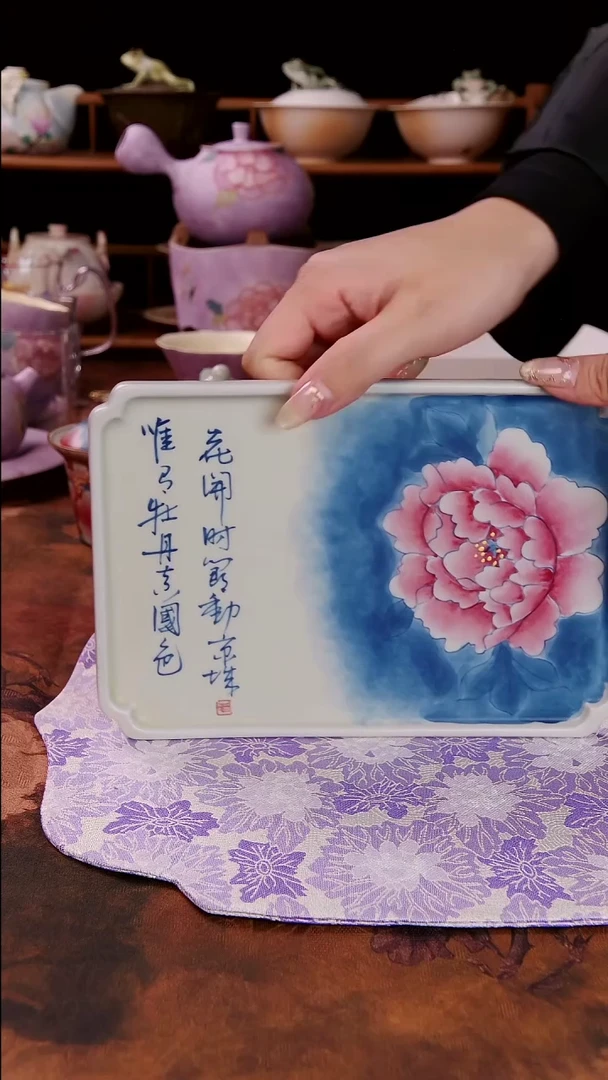 唯有牡丹真國色
花開时節動京城